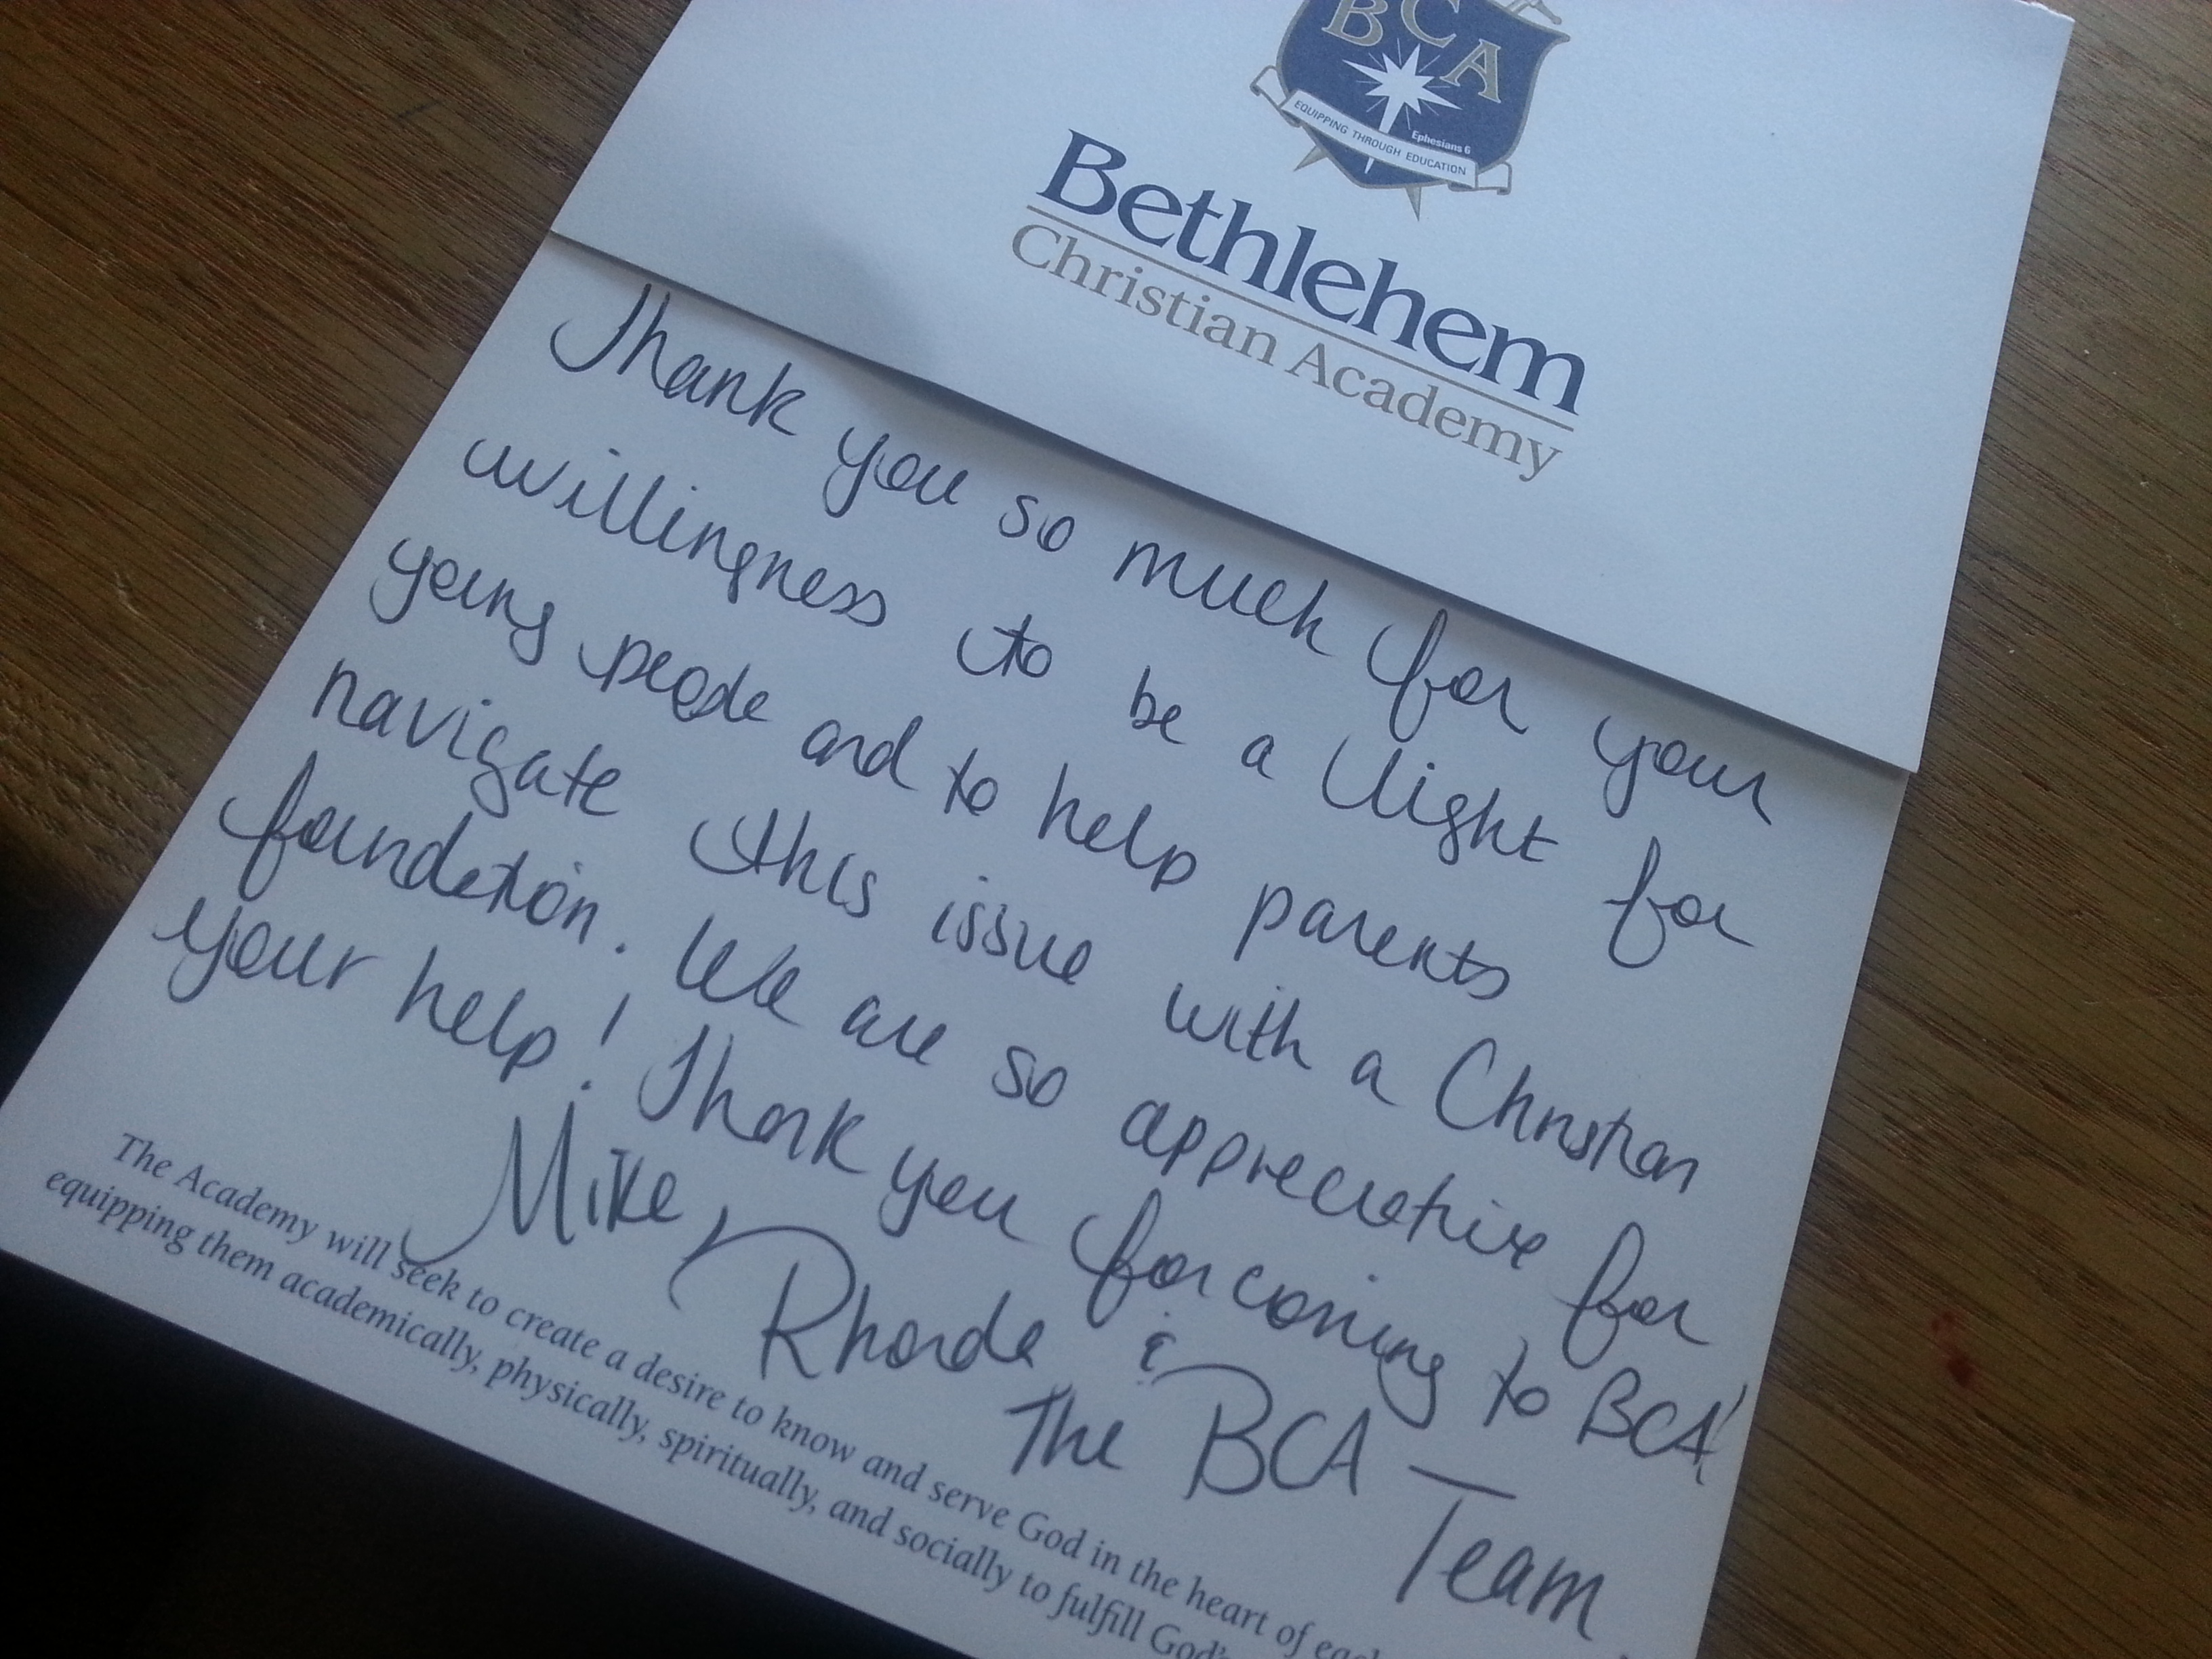 BCA
Ephesians 6
EQUIPPING THROUGH EDUCATION
Bethlehem
Christian Academy
Thank you so much for your
willingness to be a light for
young people and to help parents
navigate this issue with a Christian
foundation. We are so appreciative for
your help! Thank you for coming to BCA!
Mike, Rhonda &
The BCA Team
The Academy will seek to create a desire to know and serve God in the heart of
equipping them academically, physically, spiritually, and socially to fulfill